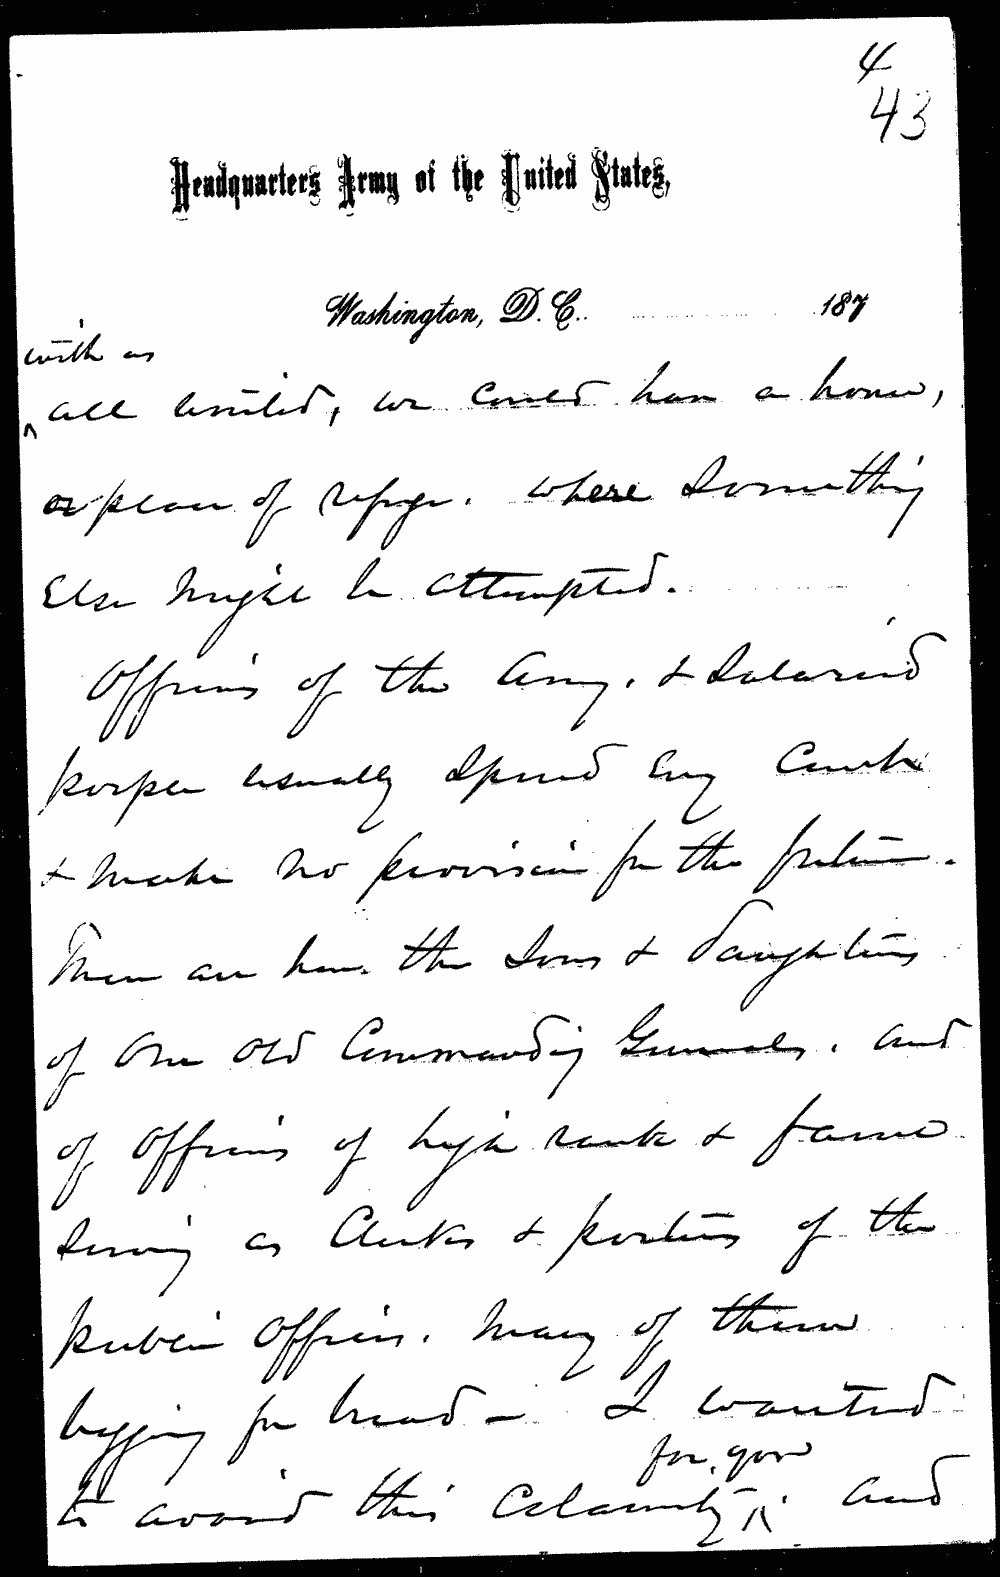 4
43
Headquarters Army of the United States,
Washington, D.C. 187
with us
^ all united, we could have a home,
or place of refuge. where Something
Else might be attempted.
Officers of the Army. & Salaried
people usually Spend Every Cent
& make no provision for the future.
There are here the Sons & daughters
of Our old Commanding Generals, and
of officers of high rank & fame
Serving as Clerks & porters of the
public offices. Many of them
begging for bread - I wanted
for you
to avoid this Calamity ^. and